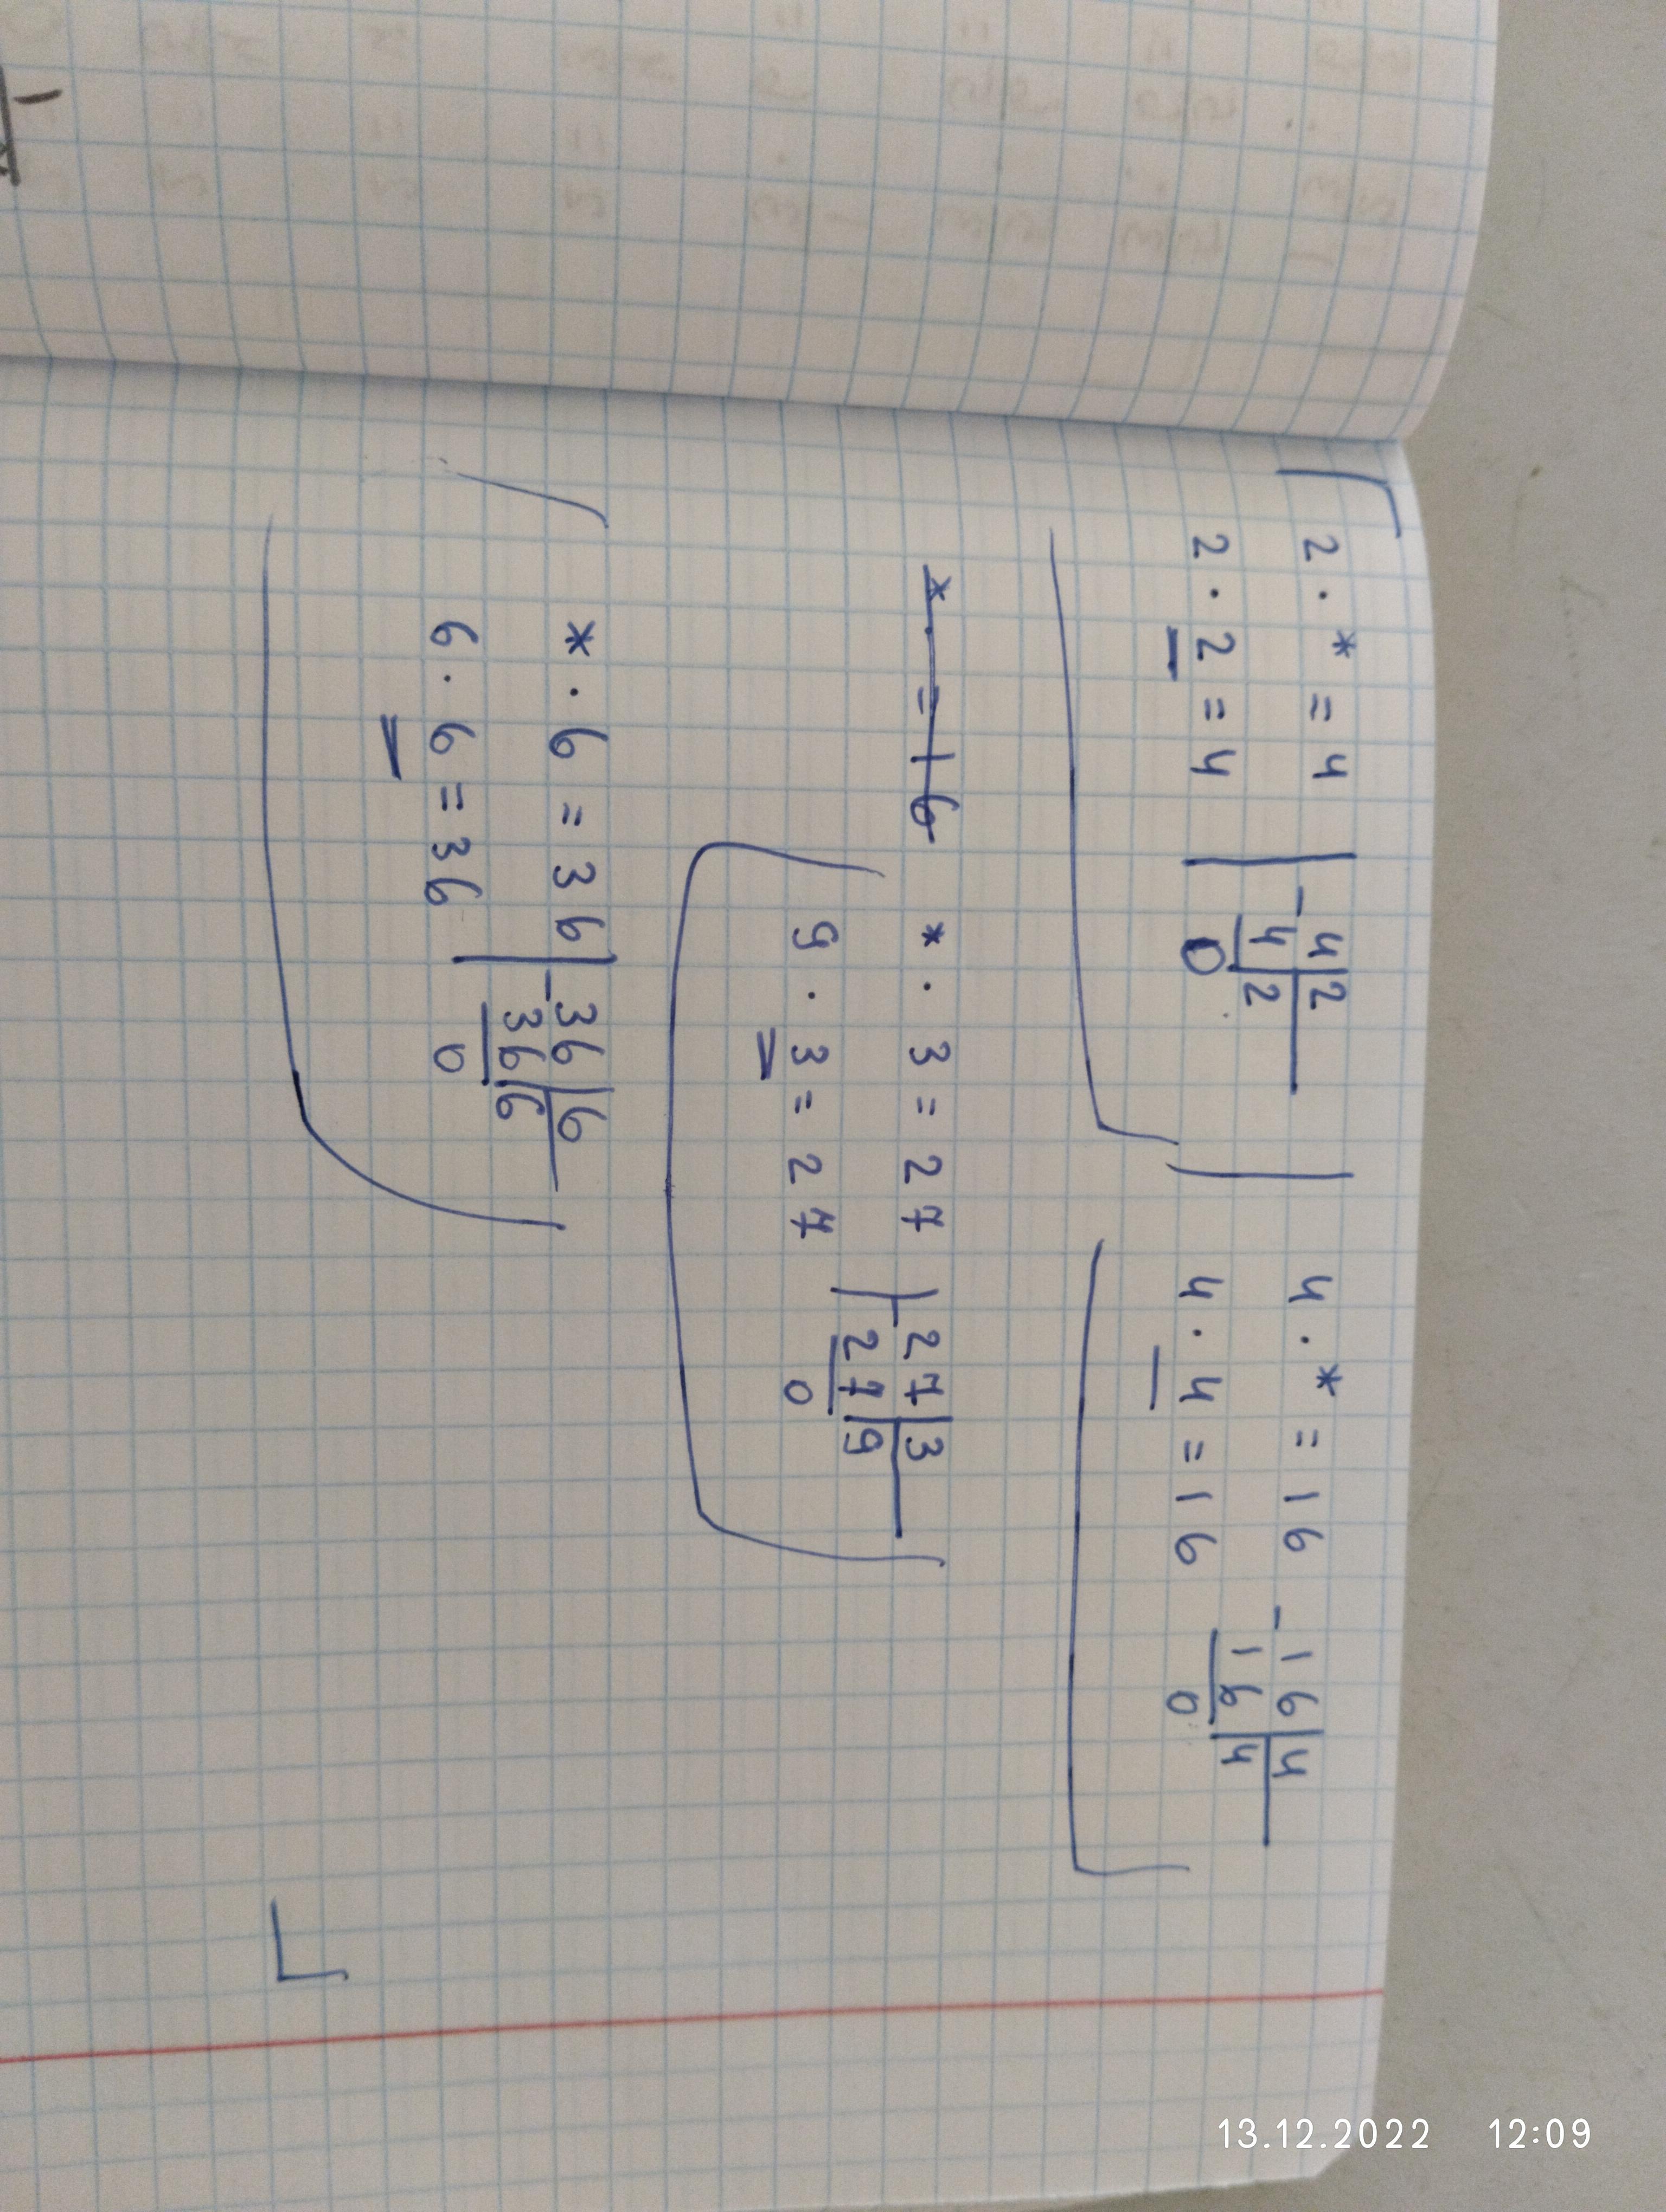 2 · * = 4
2 · 2 = 4
- 4 2
4 2
0
4 · * = 16
4 · 4 = 16
- 16 4
16 4
0
* · = 16
* · 3 = 27
9 · 3 = 27
- 27 3
27 9
0
* · 6 = 36
6 · 6 = 36
- 36 6
36 6
0
13.12.2022 12:09